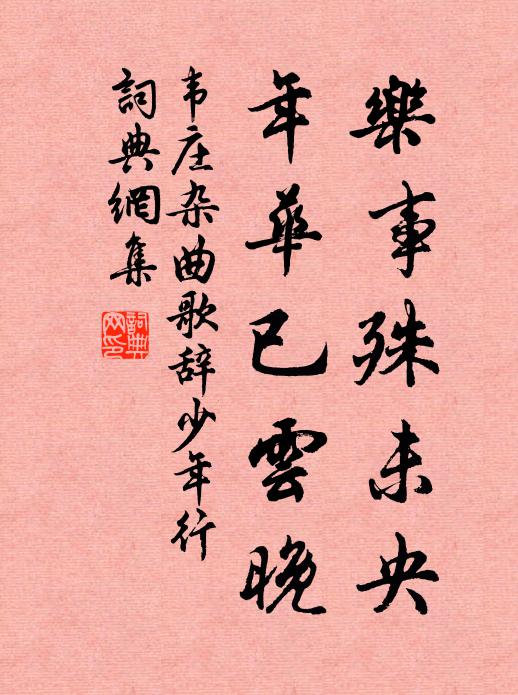 樂事殊未央
年華已雲晚
韦庄杂曲歌辞少年行
詞典網集
詞典網印